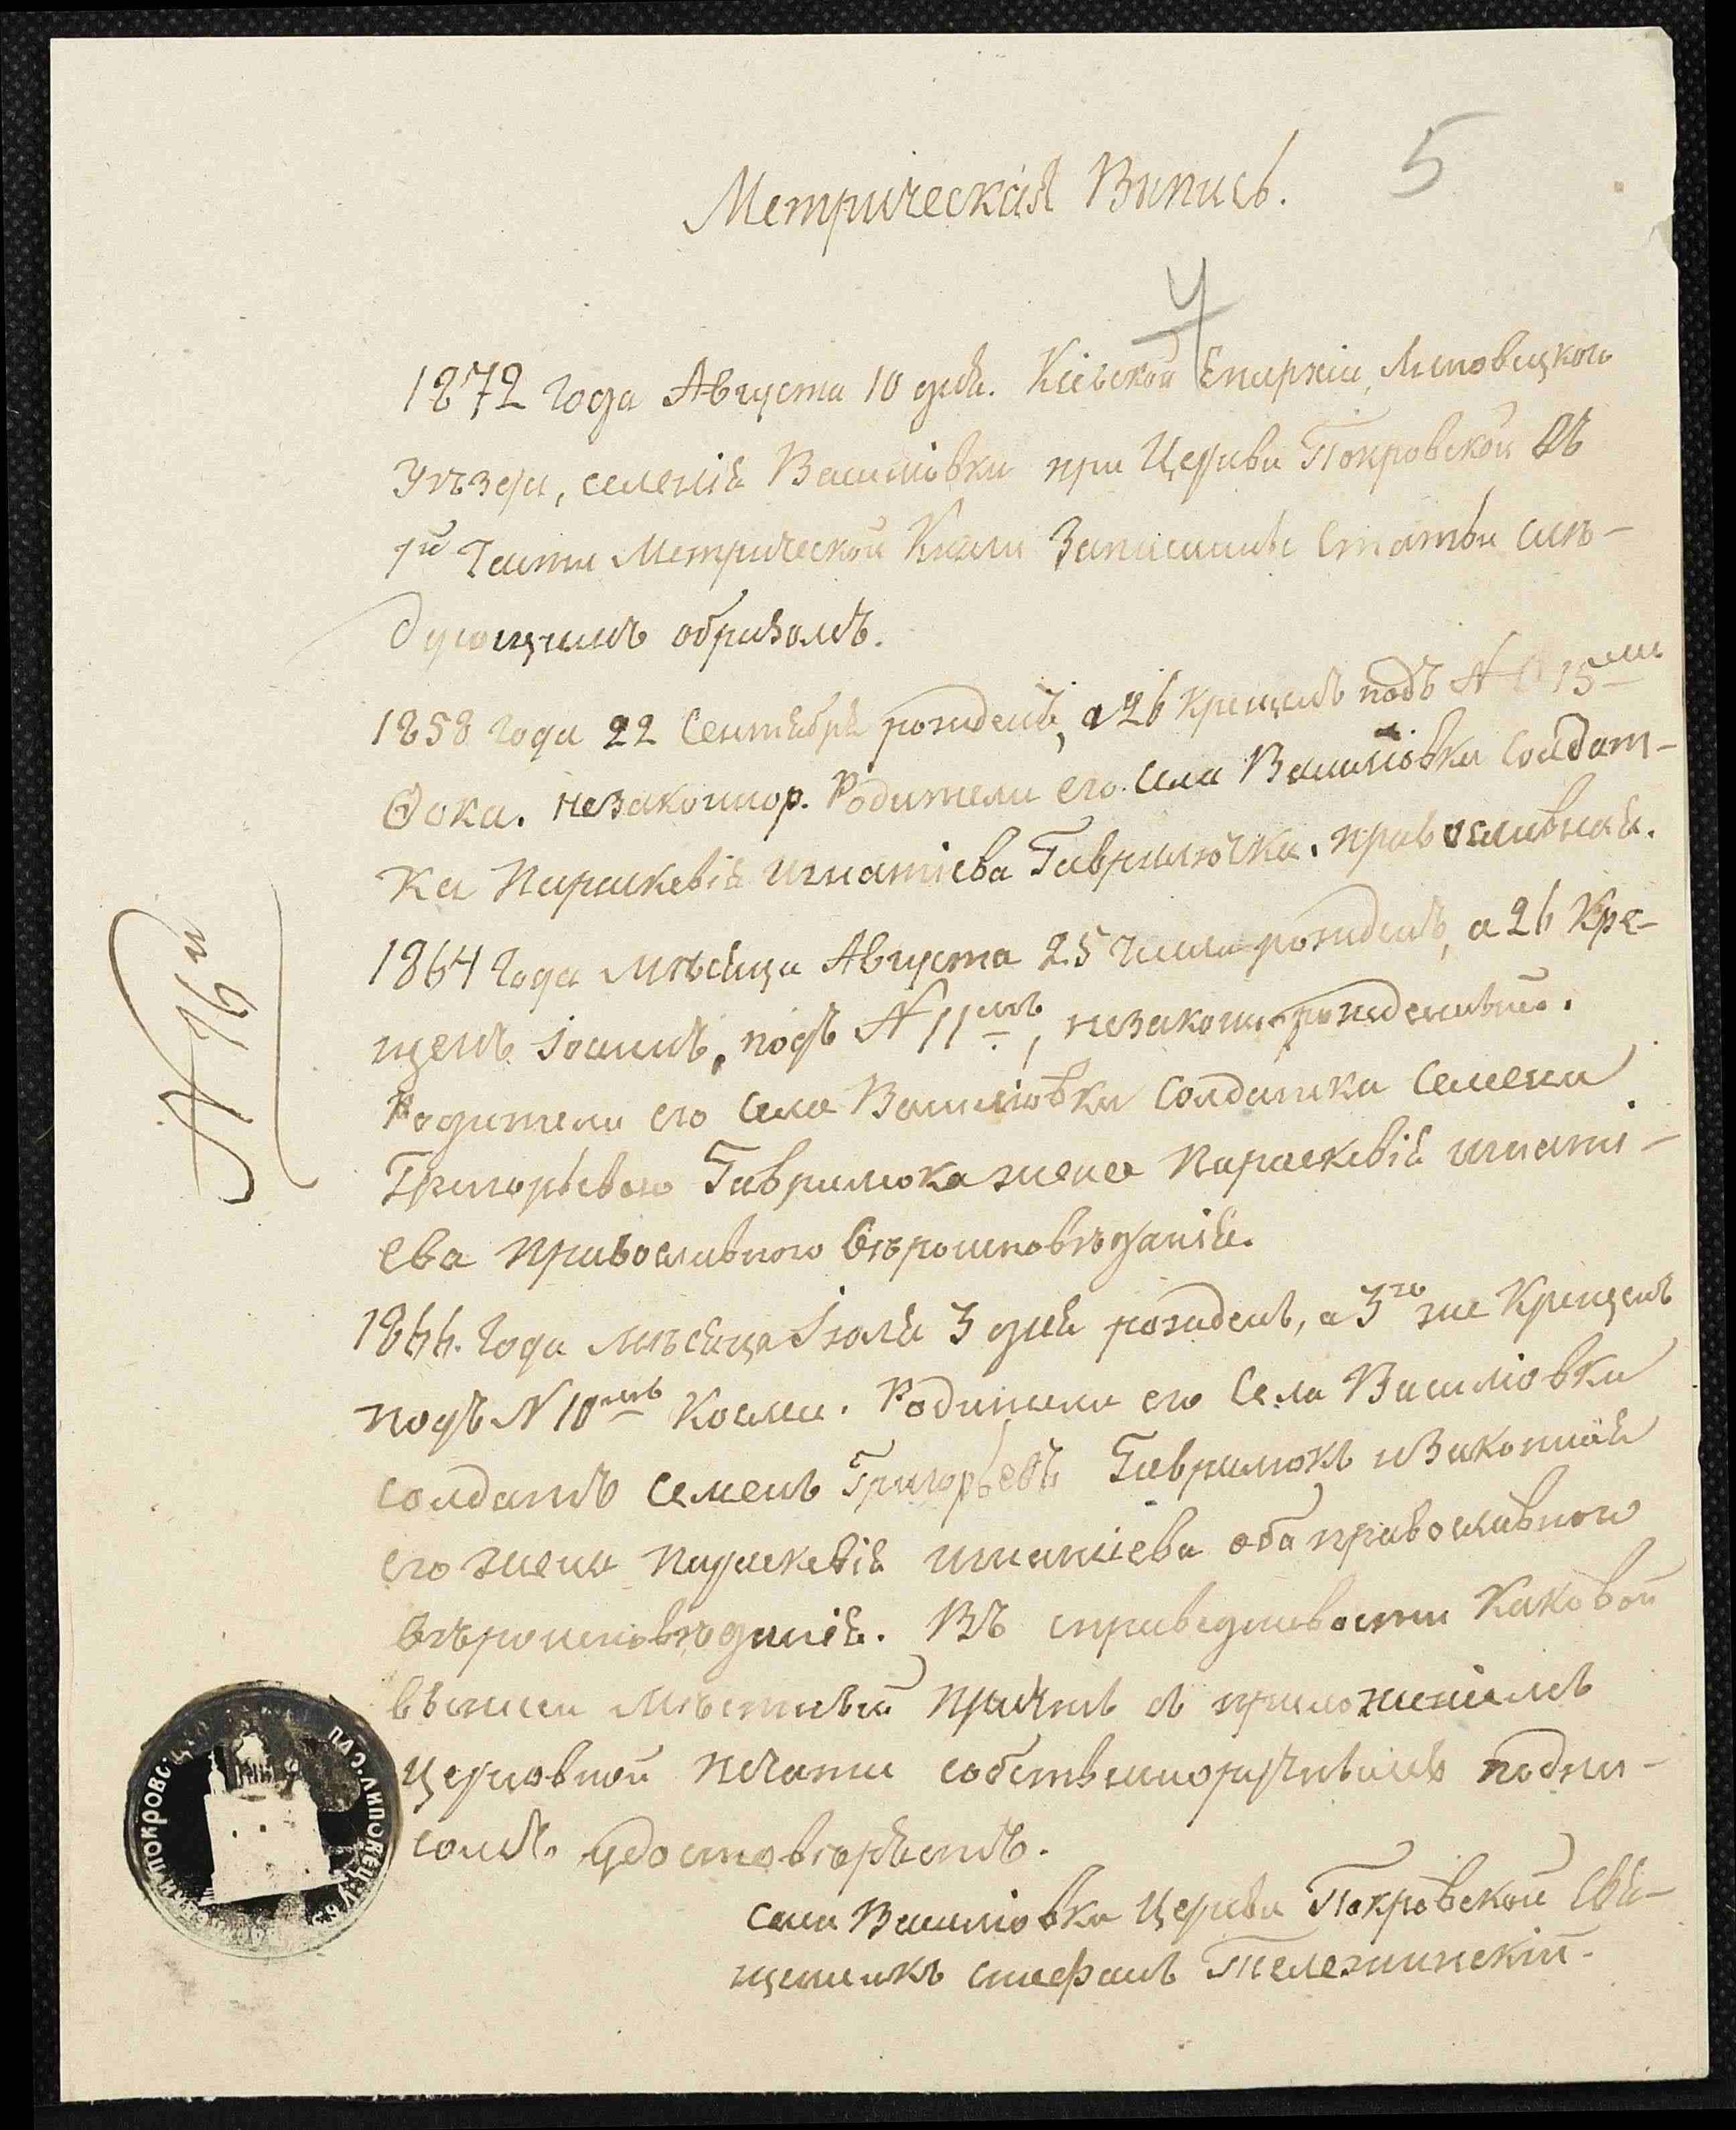 5
Метрическая Випись.
4
1872 года Августа 10 дня. Кіевской Епархіи, Липовецкого
уѣзда, селенія Василіовки при Церкви Покровской въ
1й Части Метрической Книги Записанны Статьи слѣ-
дующимъ образомъ.
1858 года 22 Сентября рожденъ, а 26 Крещенъ подъ № 15мъ
Ѳока. незаконнор. Родители его. Села Василіовки Солдат-
ка Параскевія Игнатіева Гаврилючка. православная.
1864 Года Мѣсяца Августа 25 Числа рожденъ, а 26 Кре-
щенъ Іоаннъ, подъ № 11мъ, незаконно-рожденный.
Родители его Села Василіовки Солдатка Семена
Григорьевого Гаврилюка жена Параскевія игнаті-
ева Православного Вѣроисповѣданія.
1866. Года Мѣсяца Іюля 3 дня рожденъ, а 3го же Крещенъ
подъ N 10мъ Косма. Родители его Села Василіовки
Солдатъ Семенъ Григорьевъ Гаврилюкъ и Законная
его жена Параскевія игнатіева оба православного
вѣроисповѣданія. Въ справедливости Каковой
выписи Мѣстный Причтъ съ приложеніемъ
Церковной Печати собственноручнымъ подпи-
сомъ. удостовѣряетъ.
Села Василіовки Церкви Покровской Свя-
щенникъ стефанъ Тележинскій.
№ 16й
ПОКРОВС
ЛИПОВЕЦ. У.